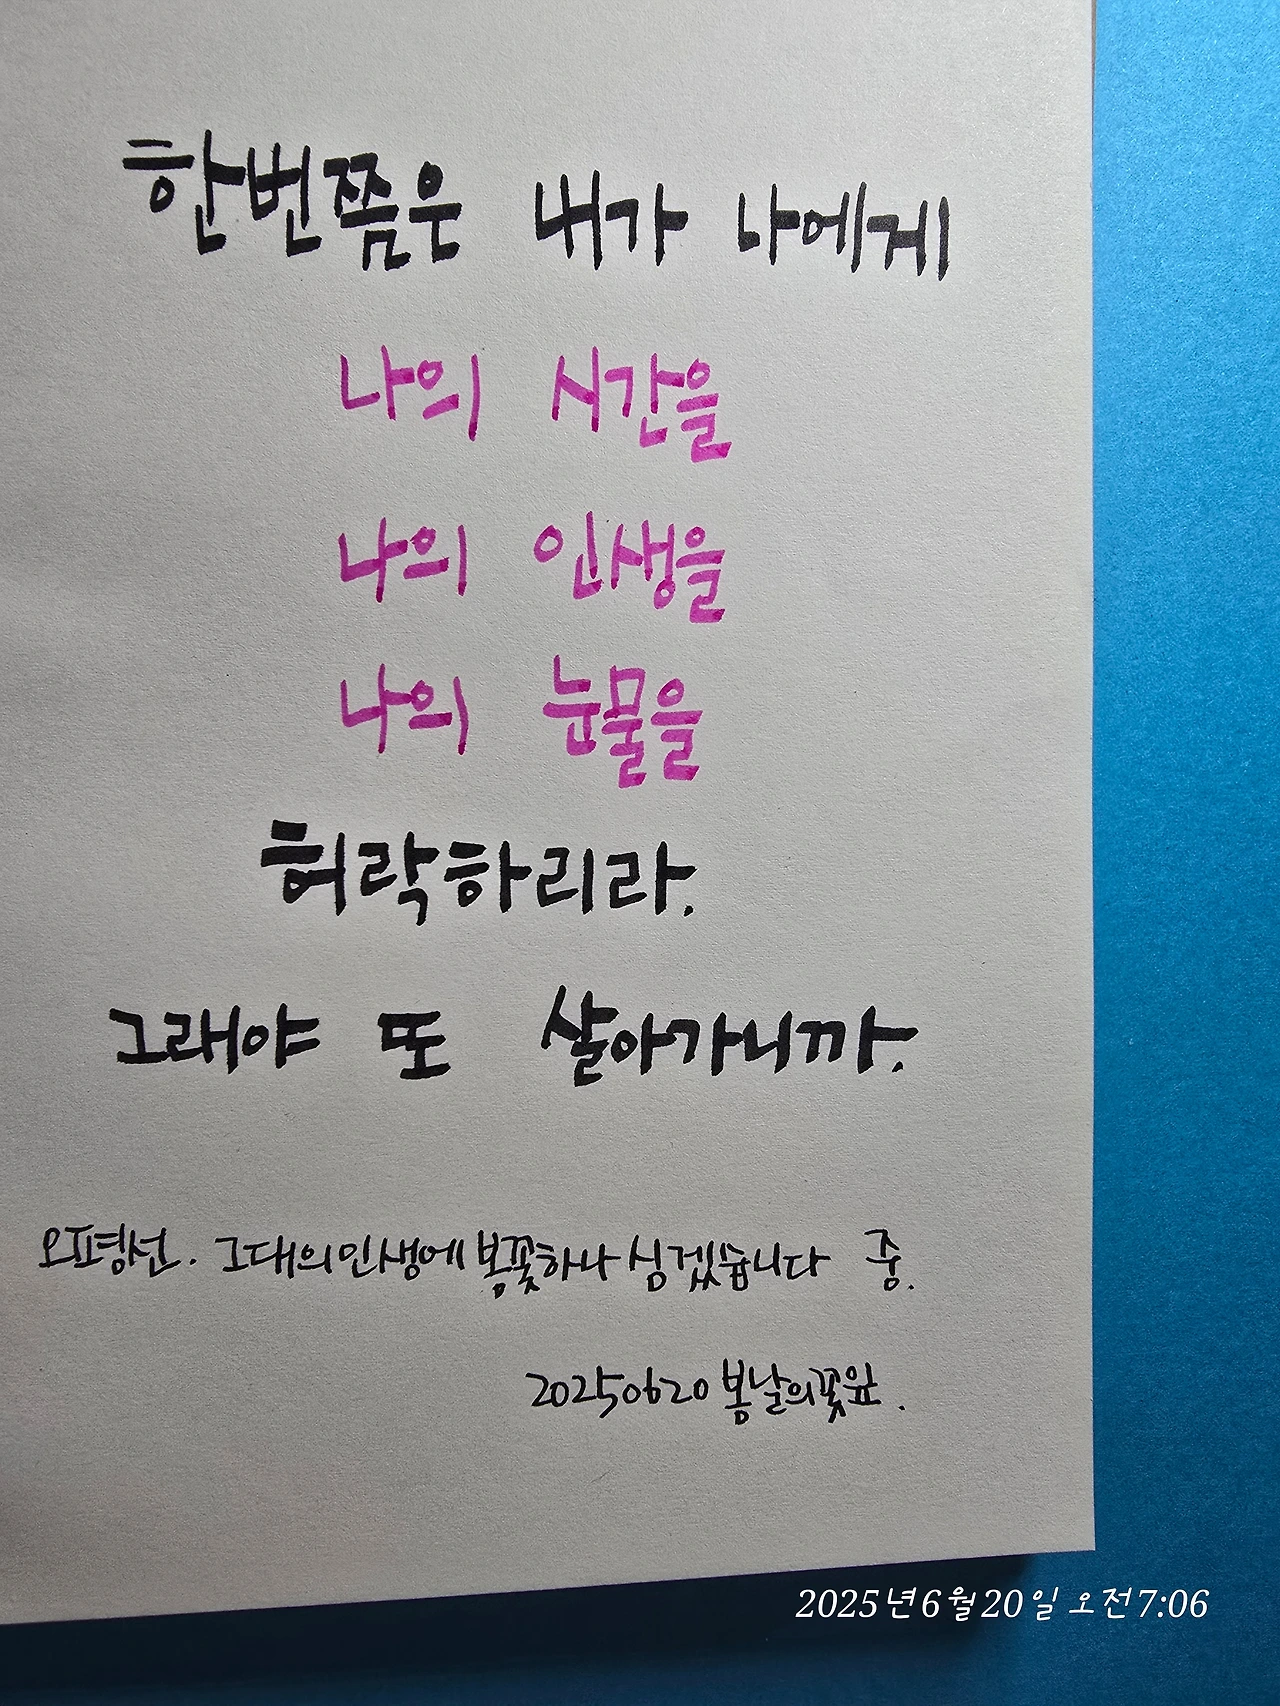 한번쯤은 내가 나에게
나의 시간을
나의 인생을
나의 눈물을
허락하리라.
그래야 또 살아가니까.
오평선. 그대의 인생에 봄꽃하나 심겠습니다 중.
20250620 봄날의꽃잎.
2025년 6월 20일 오전 7:06